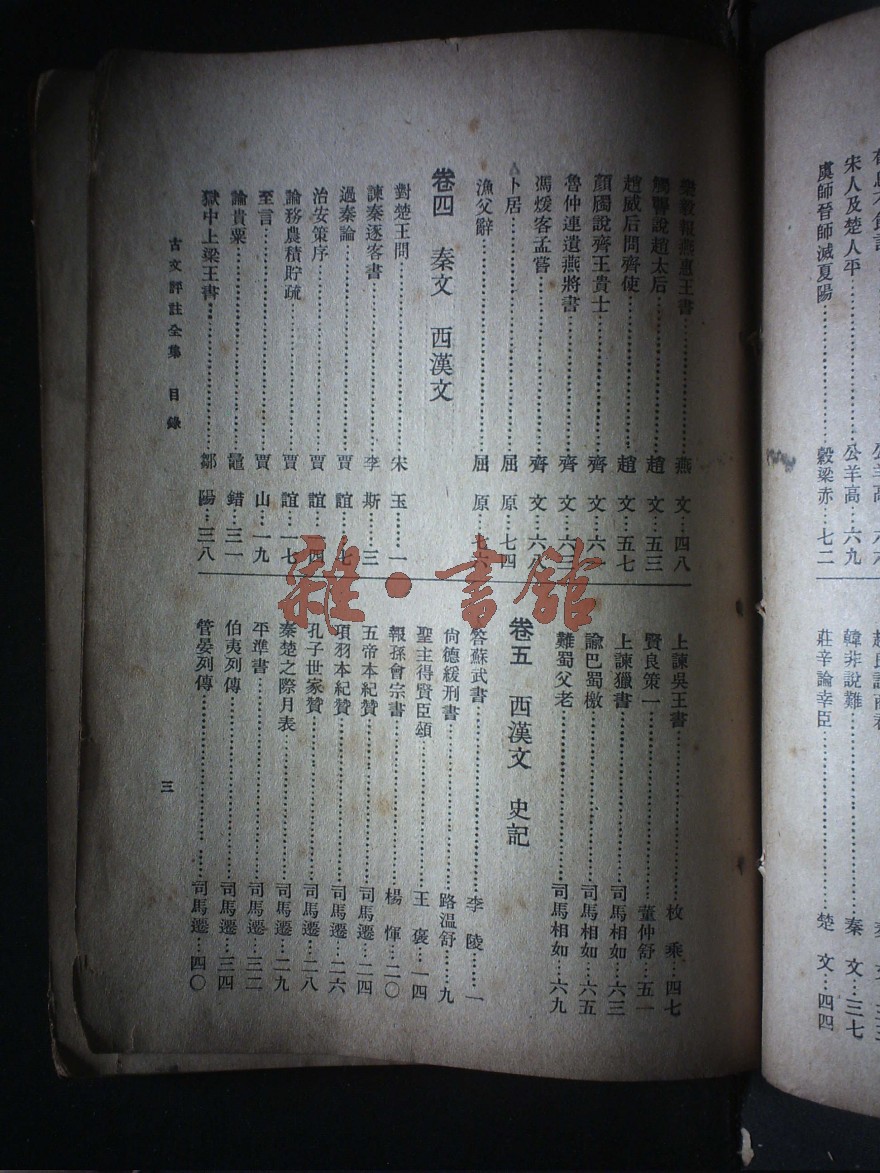 虞師晉師滅夏陽……穀梁赤…七二
宋人及楚人平……公羊高…六九
莊辛論幸臣……楚 文…四四
韓非說難……秦 文…三七
樂毅報燕惠王書……燕 文…四八
觸讋說趙太后……趙 文…五三
趙威后問齊使……趙 文…五七
顏斶說齊王貴士……齊 文…六一
魯仲連遺燕將書……齊 文…六三
馮煖客孟嘗……齊 文…六八
卜居……屈 原…七四
漁父辭……屈 原…七六
卷四 秦文 西漢文
對楚王問……宋 玉…一
諫秦逐客書……李 斯…三
過秦論……賈 誼…七
治安策序……賈 誼…四
論移農積貯疏……賈 誼…一七
至言……賈 山…一九
論貴粟……鼂 錯…三一
獄中上梁王書……鄒 陽…三八
上諫吳王書……枚 乘…四七
賢良策一……董仲舒…五一
上諫獵書……司馬相如…六三
諭巴蜀檄……司馬相如…六五
難蜀父老……司馬相如…六九
卷五 西漢文 史記
答蘇武書……李 陵…一
尚德緩刑書……路溫舒…九
聖主得賢臣頌……王 褒…一四
報孫會宗書……楊 惲…二〇
五帝本紀贊……司馬遷…二四
項羽本紀贊……司馬遷…二六
孔子世家贊……司馬遷…二八
秦楚之際月表……司馬遷…二九
平準書……司馬遷…三二
伯夷列傳……司馬遷…三四
管晏列傳……司馬遷…四〇
古文評註全集 目錄
三
雜·書館